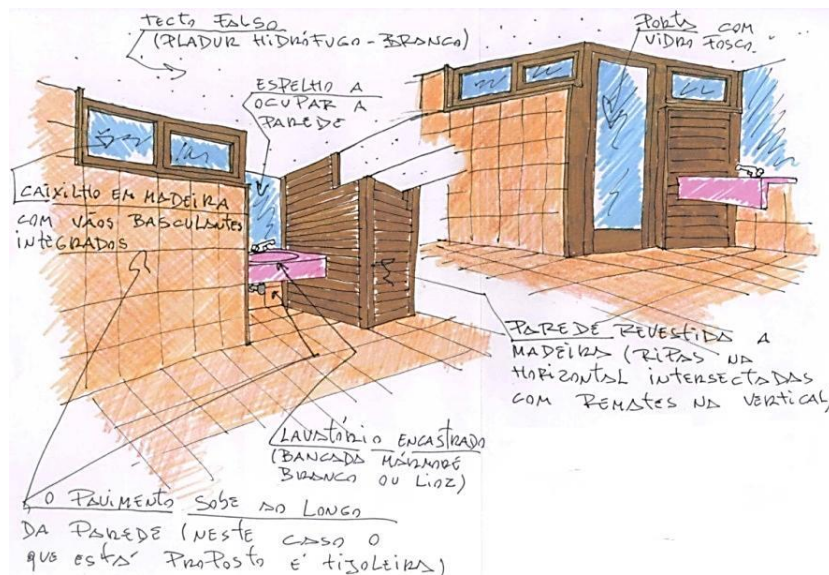 TECTO FALSO
(PLADUR HIDRÓFUGO-BRANCO)
ESPELHO A
OCUPAR A
PAREDE
PORTA COM
VIDRO FOSCO.
CAIXILHO EM MADEIRA
COM VÃOS BASCULANTES
INTEGRADOS
PAREDE REVESTIDA A
MADEIRA (RIPAS NA
HORIZONTAL INTERSECTADAS
COM REMATES NA VERTICAL)
LAVATÓRIO ENCASTRADO
(BANCADA MÁRMORE
BRANCO OU LIOZ)
O PAVIMENTO SOBE AO LONGO
DA PAREDE (NESTE CASO O
QUE ESTÁ PROPOSTO É TIJOLEIRA)